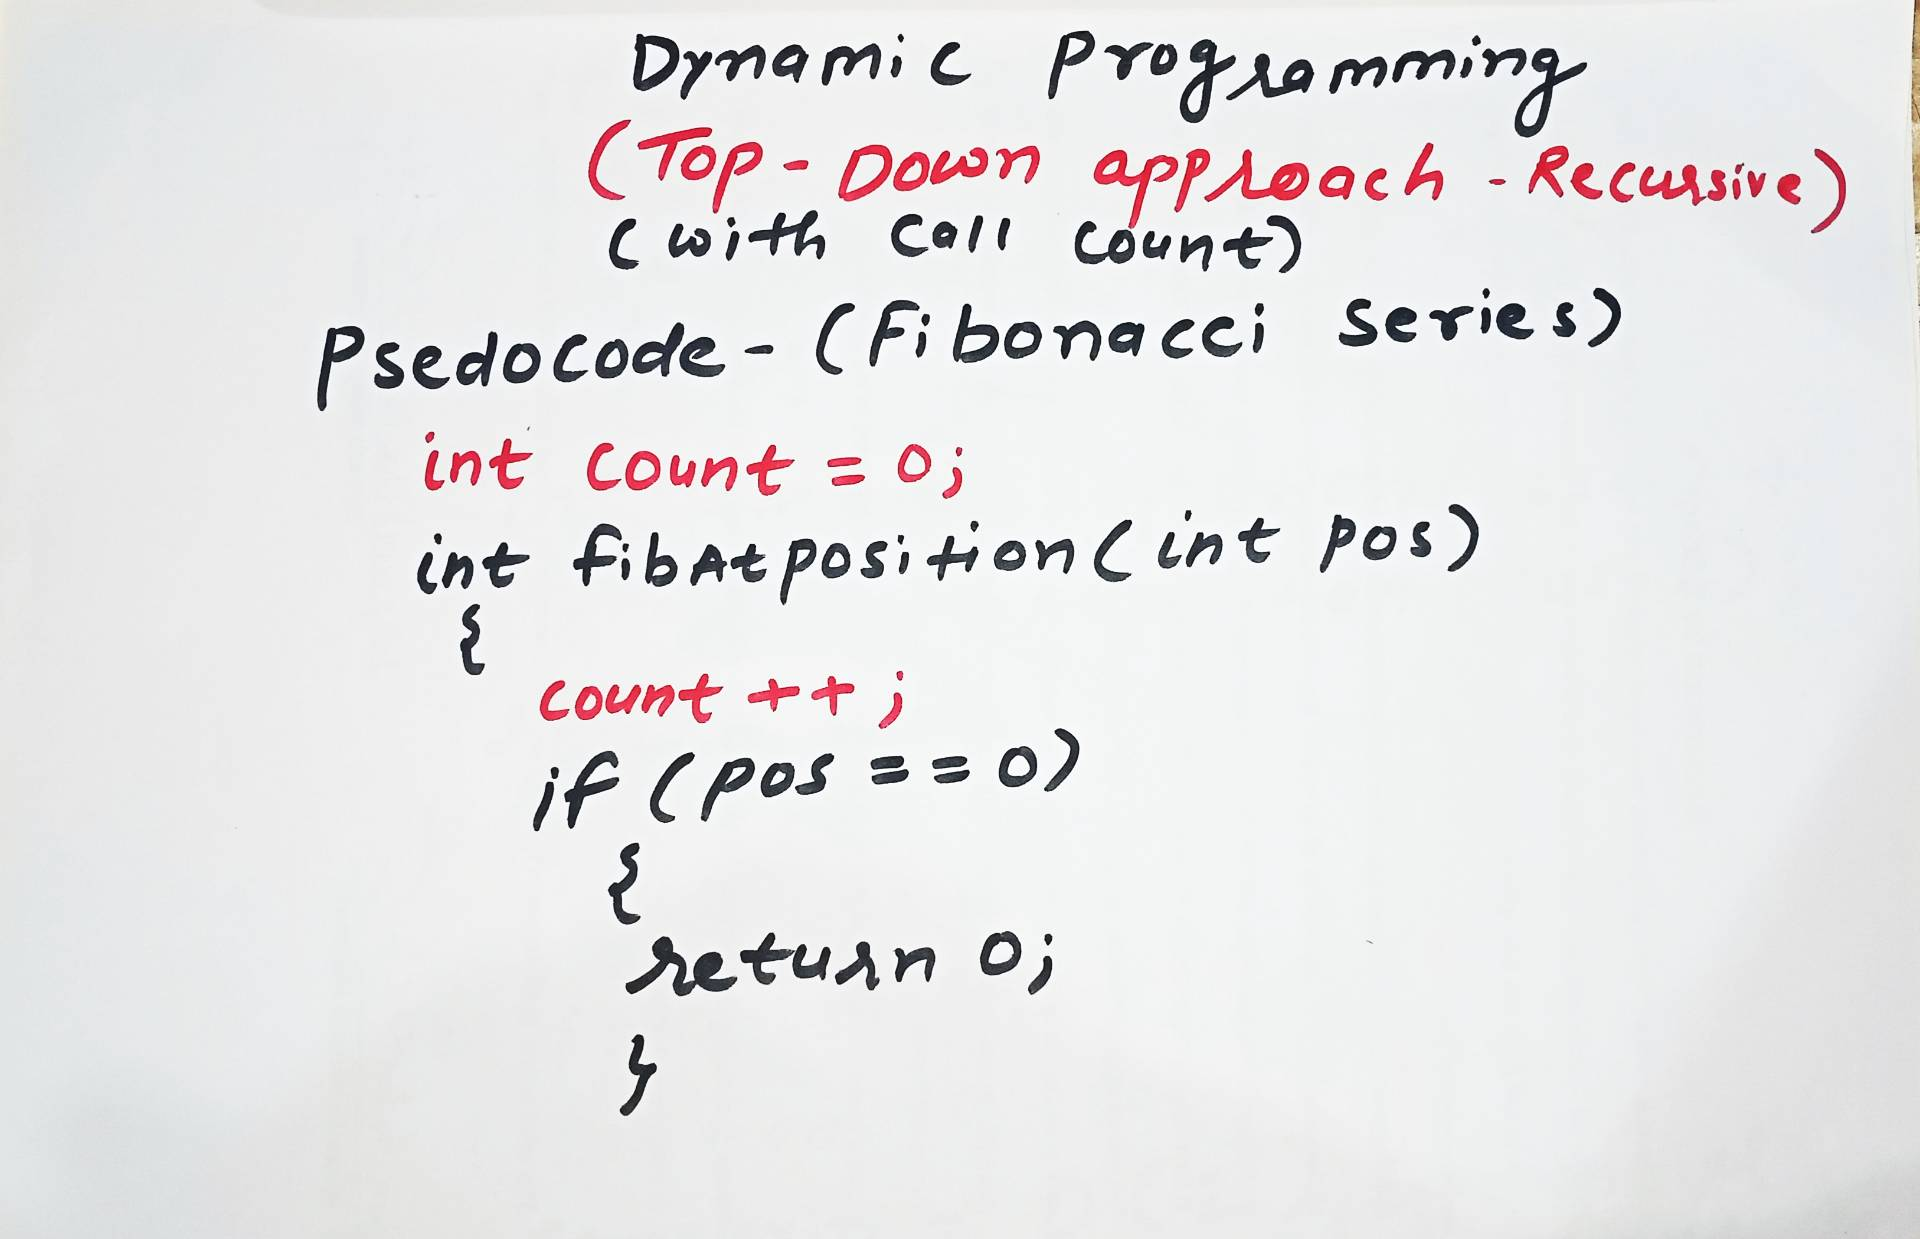 Dynamic Programming
(Top-Down approach - Recursive)
(with Call Count)
Psedocode - (Fibonacci Series)
int count = 0;
int fibAtposition(int pos)
{
count ++;
if (pos == 0)
{
return 0;
}